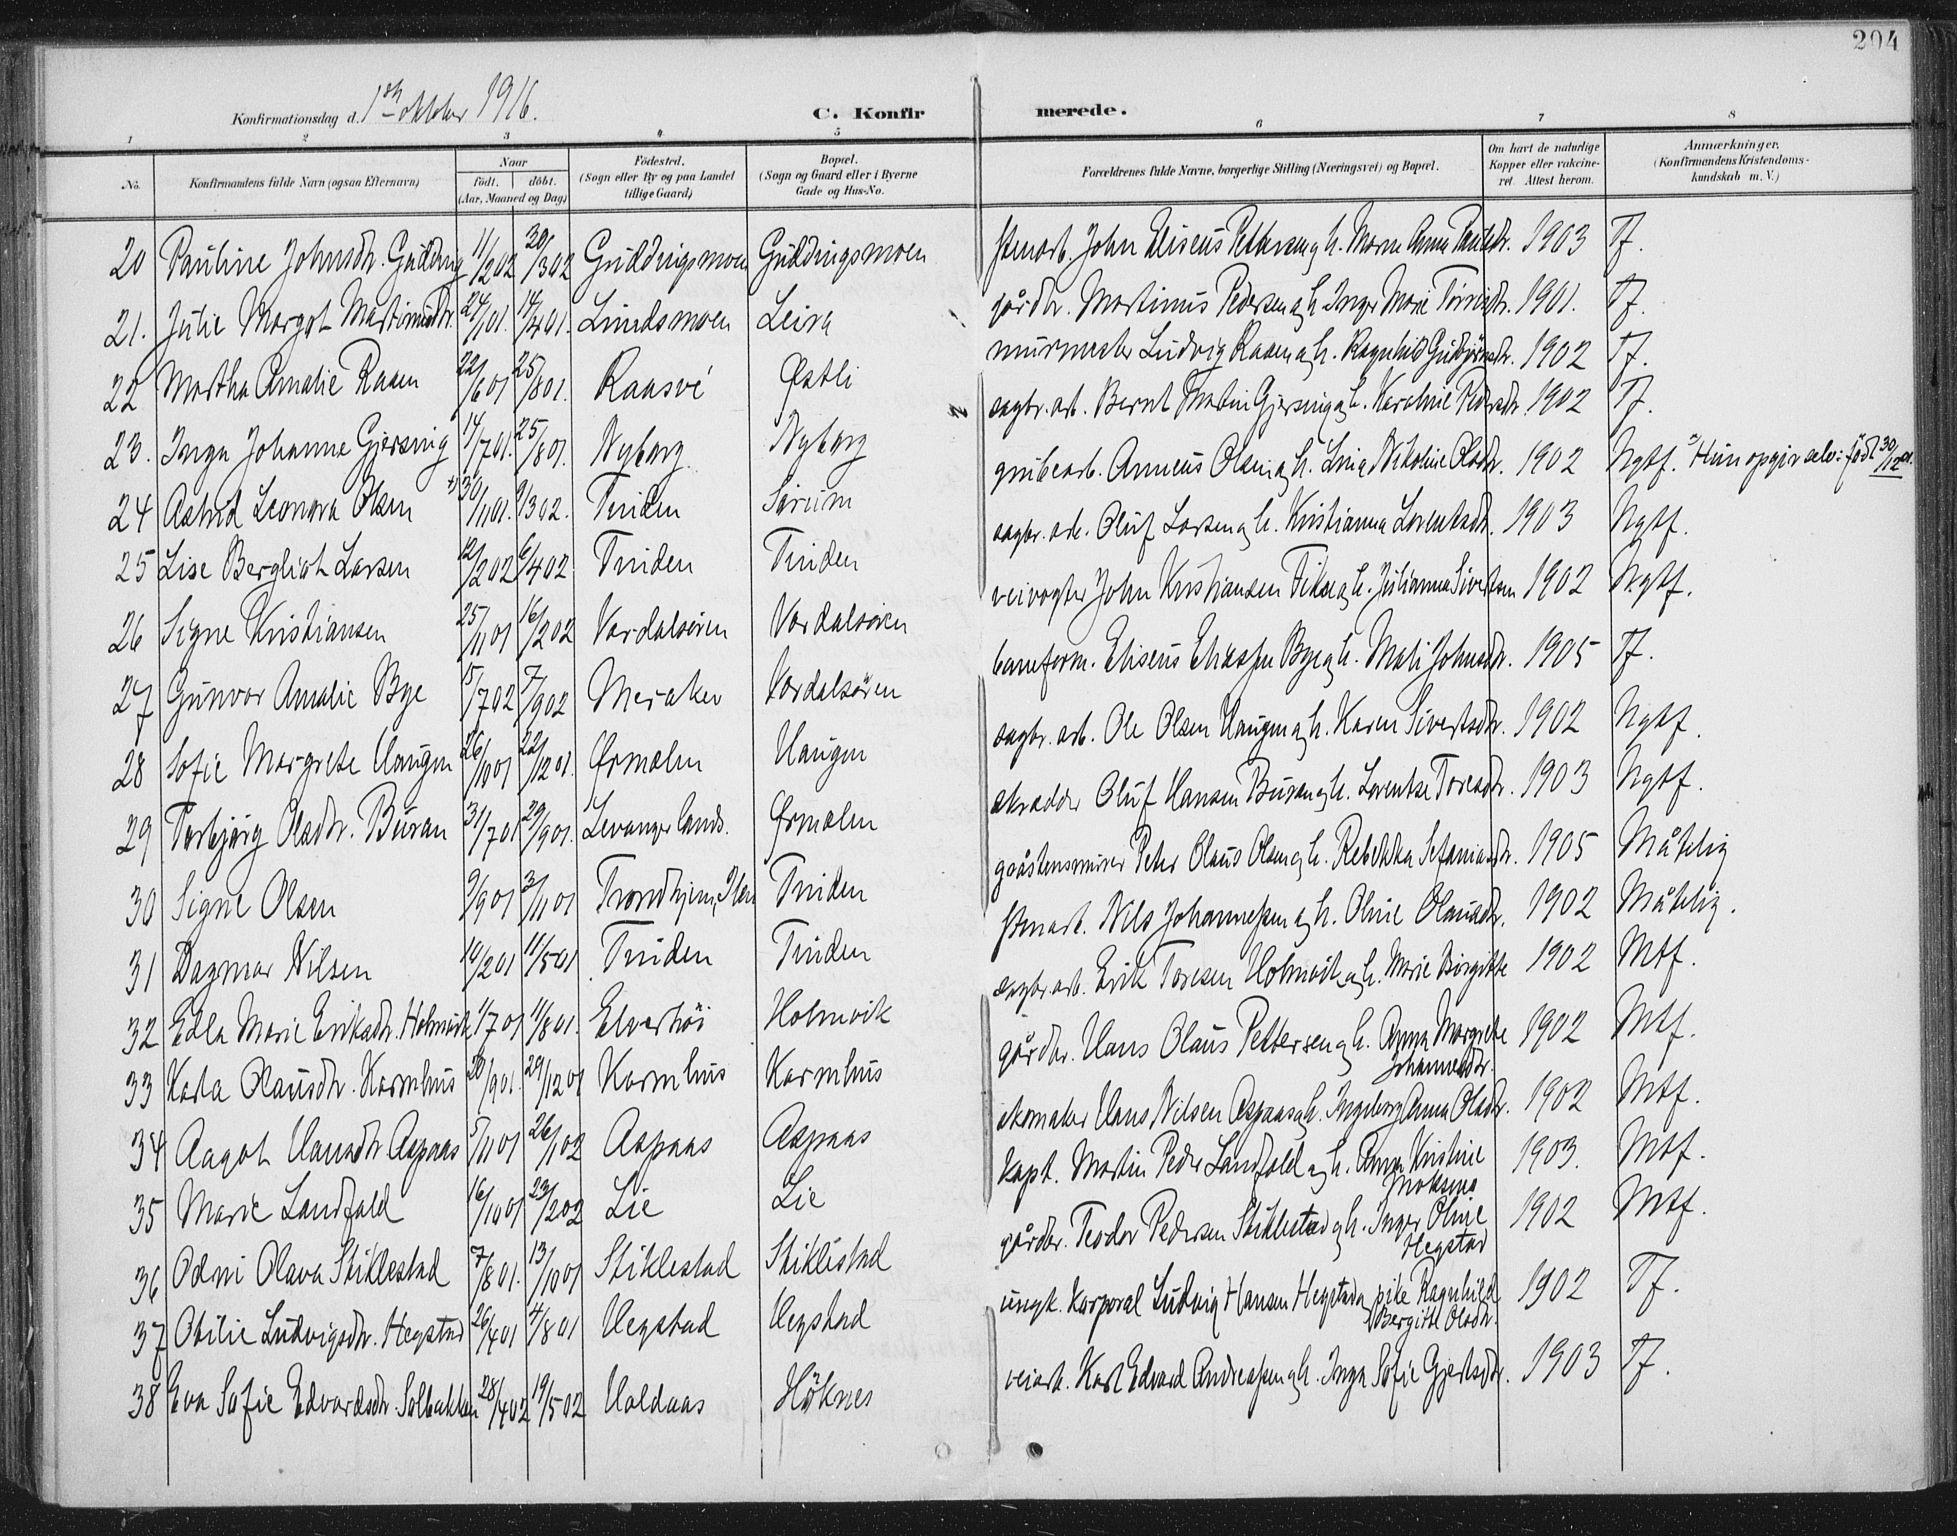 204
Konfirmationsdag d. 1ste oktober 1916.
C. Konfirmerede.
1 2 3 4 5 6 7 8
No.
Konfirmandens fulde Navn (ogsaa Efternavn)
Naar
født. døbt.
(Aar, Maaned og Dag)
Födested.
(Sogn eller By og paa Landet
tillige Gaard)
Bopæl.
(Sogn og Gaard eller i Byerne
Gade og Hus-No.
Forældrenes fulde Navne, borgerlige Stilling (Næringsvei) og Bopæl.
Om havt de naturlige
Kopper eller vakcine-
ret. Attest herom.
Anmærkninger.
(Konfirmandens Kristendoms-
kundskab m. V.)
20 Pauline Johnsdtr. Gudding 11/2 02 30/3 02 Guddingsmoen Guddingsmoen stenarb. John Eliseus Pettersen og h. Maren Anna Paulsdr. 1903 Tf.
21. Julie Margot Martinusdtr. 24/1 01. 14/4 01. Lundsmoen Leira gårdbr. Martinus Pedersen og h. Inger Marie 1901. Tf.
22 Martha Amalie Raaen 22/6 01 25/8 01. Raasve Østli murmester Ludvig Raaen og h. Ragnhild Gudbjørnsdr. 1902 Tf.
23. Inga Johanna Gjersing 14/7 01. 25/8 01. Nyborg Nyborg sagbr. arb. Bernt Martin Gjersing og h. Karoline Pedersdr. 1902 Tf.
24 Astrid Leonora Olsen *) 30/11 01. 9/3 02. Tinden Sørum grubearb. Anneus Olsen og h. Lina Nikoline Olsdr. 1902 Ngtf. *) Hun opgir selv: født 30/12 01.
25 Lise Bergliot Larsen 12/2 02 6/4 02 Tinden Tinden sagbr. arb. Oluf Larsen og h. Kristianna Lorentsdr. 1903 Ngtf.
26 Signe Kristiansen 25/11 01 16/2 02 Værdalsøren Værdalsøren veivogter John Kristiansen og h. Julianna Sivertsen 1902 Ngtf.
27 Gunvor Amalie Bye 15/7 02 7/9 02 Meraker Værdalsøren baneform. Eliseus Eliassen Bye og h. Mali Johnsdr. 1905 Tf.
28 Sofie Margrete Haugen 26/10 01 22/12 01. Ørmælen Haugen sagbr. arb. Ole Olsen Haugen og h. Karen Sivertsdtr. 1902 Ngtf.
29 Torbjørg Olsdtr. Buran 31/7 01 29/9 01. Levanger lands. Ørmælen skrædder Oluf Hansen Buran og h. Lorentse Toresdr. 1903 Ngtf.
30 Signe Olsen 9/9 01 3/11 01 Trondhjem, Ilen Tinden gråstensmurer Peter Olaus Olsen og h. Rebekka Sefaniasdr. 1905 Måtelig
31 Dagmar Nilsen 10/2 01 11/5 01 Tinden Tinden stenarb. Nils Johannessen og h. Oline Olausdr. 1902 Måtelig.
32 Edla Marie Eriksdr. Holmvik 1/7 01 11/8 01. Elverhöi Holmvik sagbr. arb. Erik Toresen Holmvik og h. Marie Birgitte 1902 Mtf.
33 Karla Olausdtr. Karmhus 20/9 01. 29/12 01 Karmhus Karmhus gårdbr. Hans Olaus Pettersen og h. Anna Margrete Johannesdtr. 1902 Mtf.
34 Aagot Hansdtr Aspaas 5/11 01 26/1 02 Aspaas Aspaas skomaker Hans Nilsen Aspaas og h. Ingeborg Anna Olsdr. 1902 Mtf.
35 Marie Landfald 16/10 01 23/2 02 Lie Lie kapt. Martin Peder Landfald og h. Anna Kristine Moksnes 1903. Mtf.
36 Odni Olava Stiklestad 7/8 01. 13/10 01 Stiklestad Stiklestad gårdbr. Teodor Pedersen Stiklestad og h. Inger Oline Hegstad 1902 Mtf.
37 Otilie Ludvigsdtr. Hegstad 26/4 01 4/8 01 Hegstad Hegstad ungk. korporal Ludvig Hansen Hegstad og pike Ragnhild Bergitte Olsdtr. 1902 Tf.
38 Eva Sofie Edvardsdtr. Solbakken 28/4 02 19/5 02 Haldaas Höknes veiarb. Karl Edvard Andreassen og h. Inga Sofie Gjertsdtr. 1903 Tf.